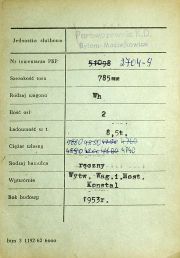 Jednostka służbowa
Parowozownia K.D.
Bytom-Maciejkowice
Nr inwentarza PKP 51098 2704-9
Szerokość toru 785mm
Rodzaj wagonu Wh
Ilość osi 2
Ładowność w t. 8,5t.
Ciężar własny
4140
Rodzaj hamulca ręczny
Wytwórnia Wytw. Wag.i.Most.
Konstal
Rok budowy 1953r.